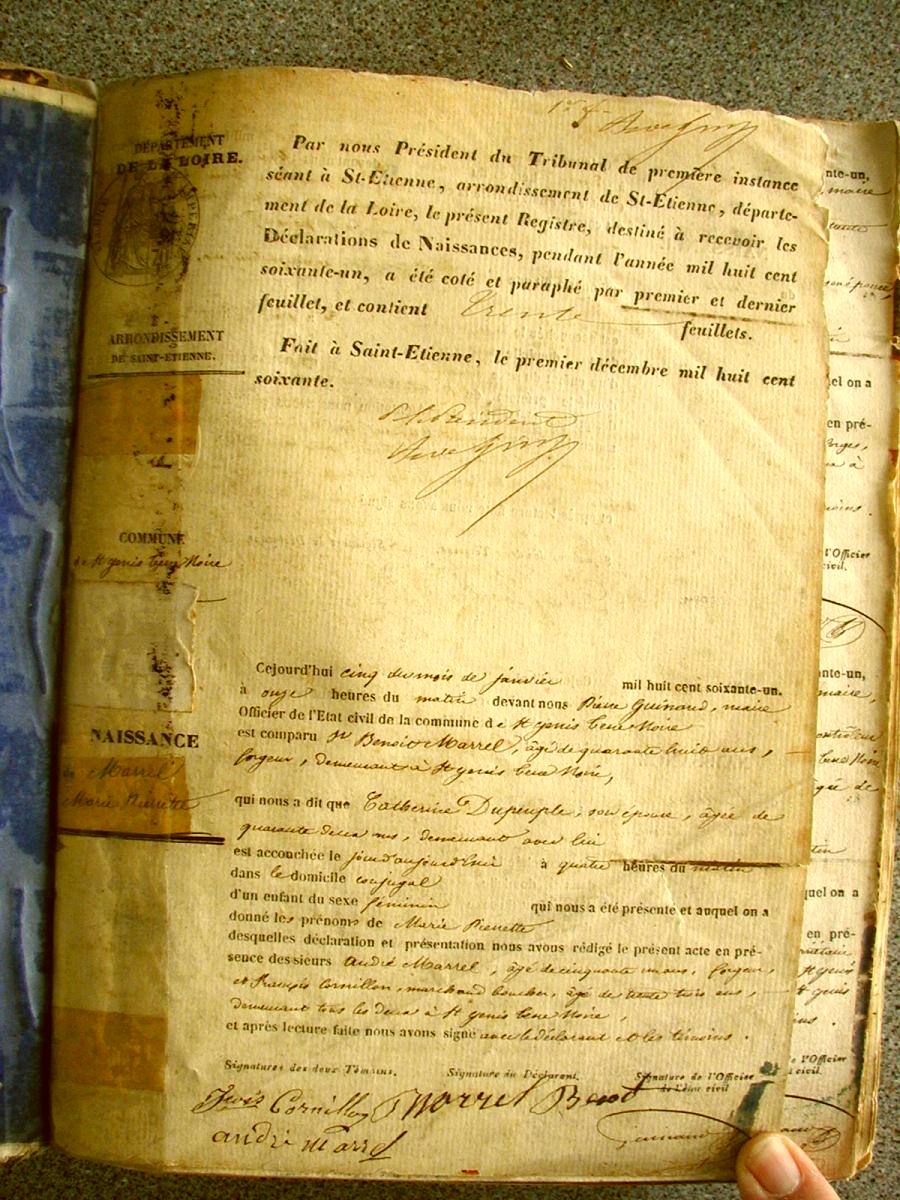 DÉPARTEMENT
DE LA LOIRE.
Par nous Président du Tribunal de première instance
séant à St-Etienne, arrondissement de St-Etienne, départe-
ment de la Loire, le présent Registre, destiné à recevoir les
Déclarations de Naissances, pendant l'année mil huit cent
soixante-un, a été coté et paraphé par premier et dernier
feuillet, et contient trente feuillets.
Fait à Saint-Etienne, le premier décembre mil huit cent
soixante.
ARRONDISSEMENT
DE SAINT-ETIENNE.
COMMUNE
de St genis terre Noire
Cejourd'hui cinq du mois de janvier mil huit cent soixante-un.
à onze heures du matin devant nous Pierre Guinand, maire
Officier de l'Etat civil de la commune de St genis terre Noire
est comparu Sr Benoit Marrel, âgé de quarante huit ans,
forgeur, demeurant à St genis terre Noire,
NAISSANCE
de Marrel
Marie Pierrette
qui nous a dit que Catherine Dupeuple, son épouse, âgée de
quarante deux ans, demeurant avec lui
est accouchée le jour d'aujourd'hui à quatre heures du matin
dans le domicile conjugal
d'un enfant du sexe féminin qui nous a été présenté et auquel on a
donné les prénoms de Marie Pierrette
desquelles déclaration et présentation nous avons rédigé le présent acte en pré-
sence des sieurs André Marrel, âgé de cinquante un ans, forgeur,
et françois Cornillon, marchand boucher, âgé de trente trois ans,
demeurant tous les deux à St genis terre Noire,
et après lecture faite nous avons signé avec le déclarant et les témoins.
Signatures des deux Témoins. Signature du Déclarant. Signature de l'Officier
de l'état civil
Cornillon Marrel Benoit
andré Marrel
nte-un,
maire
lel on a
en pré-
forges,
l'Officier
civil.
nte-un,
maire,
terre Noire
âgée de
quel on a
en pré-
St genis
l'Officier
civil.